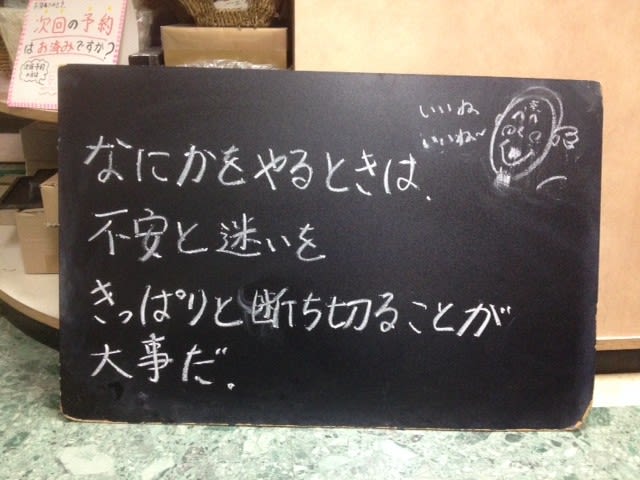 次回の予約
はお済みですか?
いいね
いいね~
なにかをやるときは、
不安と迷いを
きっぱりと断ち切ることが
大事だ。